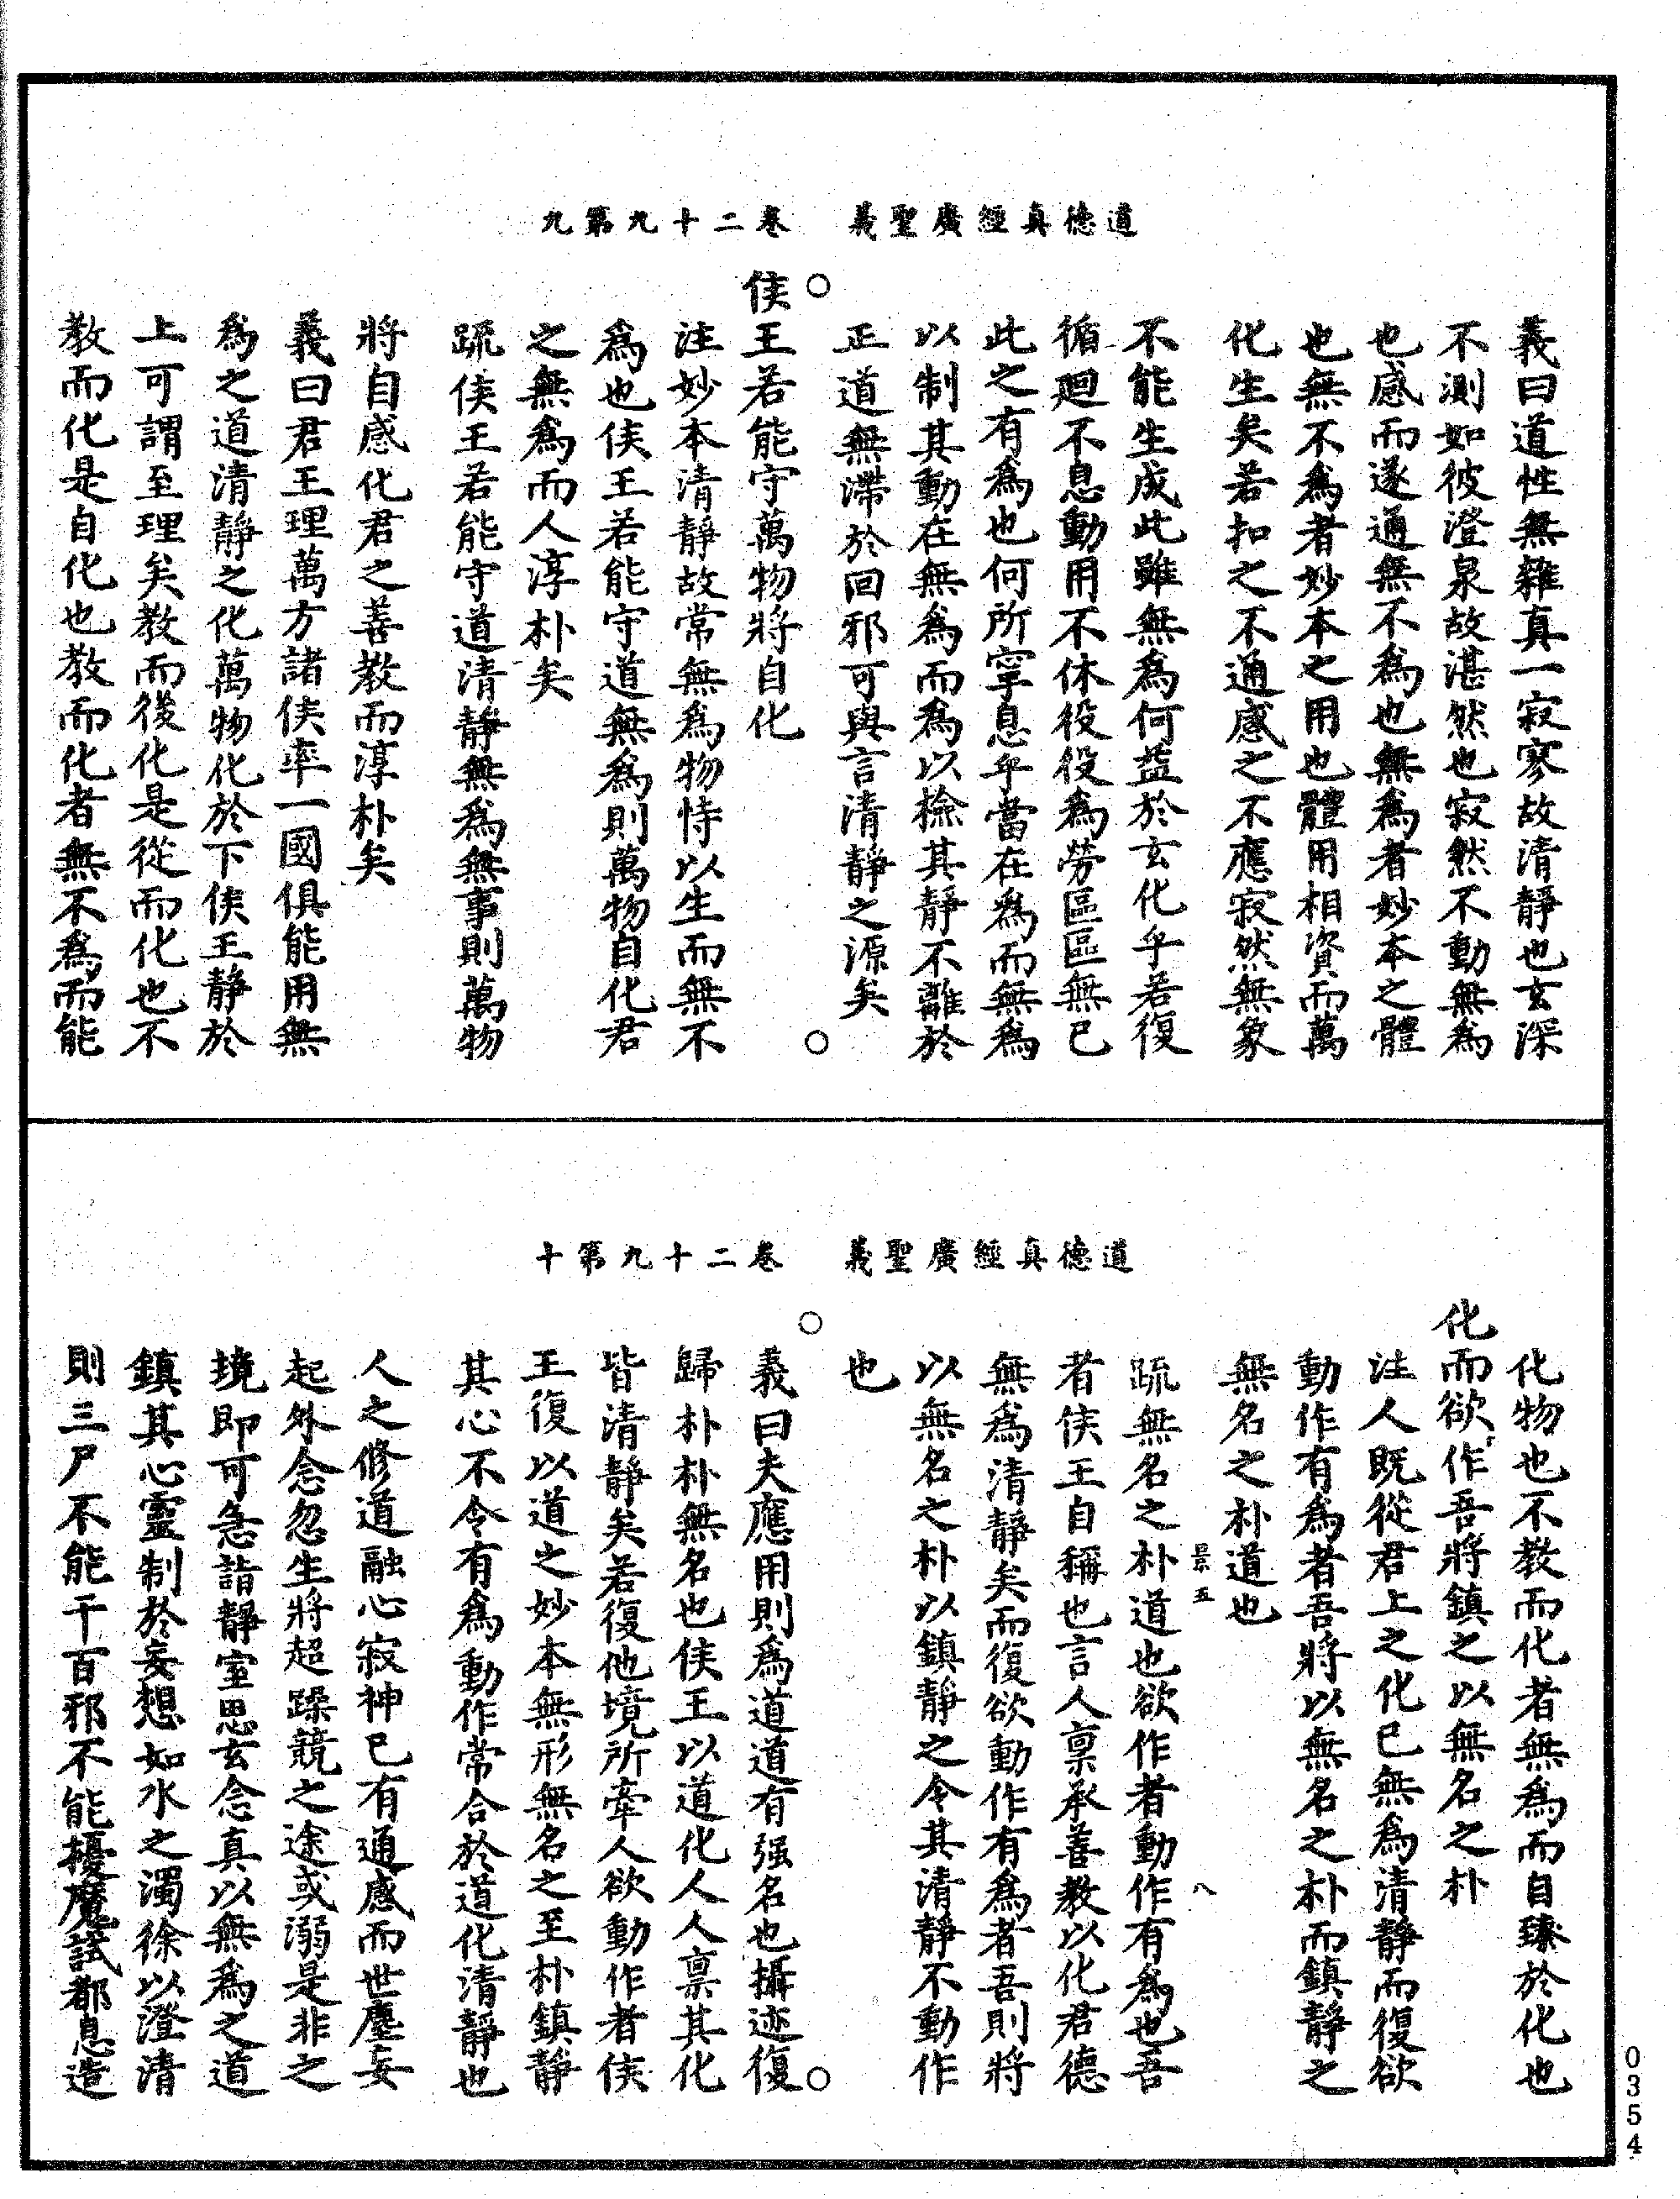 道德真經廣聖義　卷二十九第九
義曰道性無雜真一寂寥故清靜也玄深
不測如彼澄泉故湛然也寂然不動無為
也感而遂通無不為也無為者妙本之體
也無不為者妙本之用也體用相資而萬
化生矣若扣之不通感之不應寂然無象
不能生成此雖無為何益於玄化乎若復
循廻不息動用不休役役為勞區區無已
此之有為也何所寧息乎當在為而無為
以制其動在無為而為以撿其靜不離於
正道無滯於回邪可與言清靜之源矣
侯王若能守萬物將自化
注妙本清靜故常無為物恃以生而無不
為也侯王若能守道無為則萬物自化君
之無為而人淳朴矣
疏侯王若能守道清靜無為無事則萬物
將自感化君之善教而淳朴矣
義曰君王理萬方諸侯率一國俱能用無
為之道清靜之化萬物化於下侯王靜於
上可謂至理矣教而後化是從而化也不
教而化是自化也教而化者無不為而能
道德真經廣聖義　卷二十九第十
化物也不教而化者無為而自臻於化也
化而欲作吾將鎮之以無名之朴
注人既從君上之化已無為清靜而復欲
動作有為者吾將以無名之朴而鎮靜之
無名之朴道也
景五　八
疏無名之朴道也欲作者動作有為也吾
者侯王自稱也言人稟承善教以化君德
無為清靜矣而復欲動作有為者吾則將
以無名之朴以鎮靜之令其清靜不動作
也
義曰夫應用則為道道有强名也攝迹復
歸朴朴無名也侯王以道化人人稟其化
皆清靜矣若復他境所牽人欲動作者侯
王復以道之妙本無形無名之至朴鎮靜
其心不令有為動作常合於道化清靜也
人之修道融心寂神已有通感而世塵妄
起外念忽生將超躁競之途或溺是非之
境即可急詣靜室思玄念真以無為之道
鎮其心靈制於妄想如水之濁徐以澄清
則三尸不能干百邪不能擾魔試都息造
0354